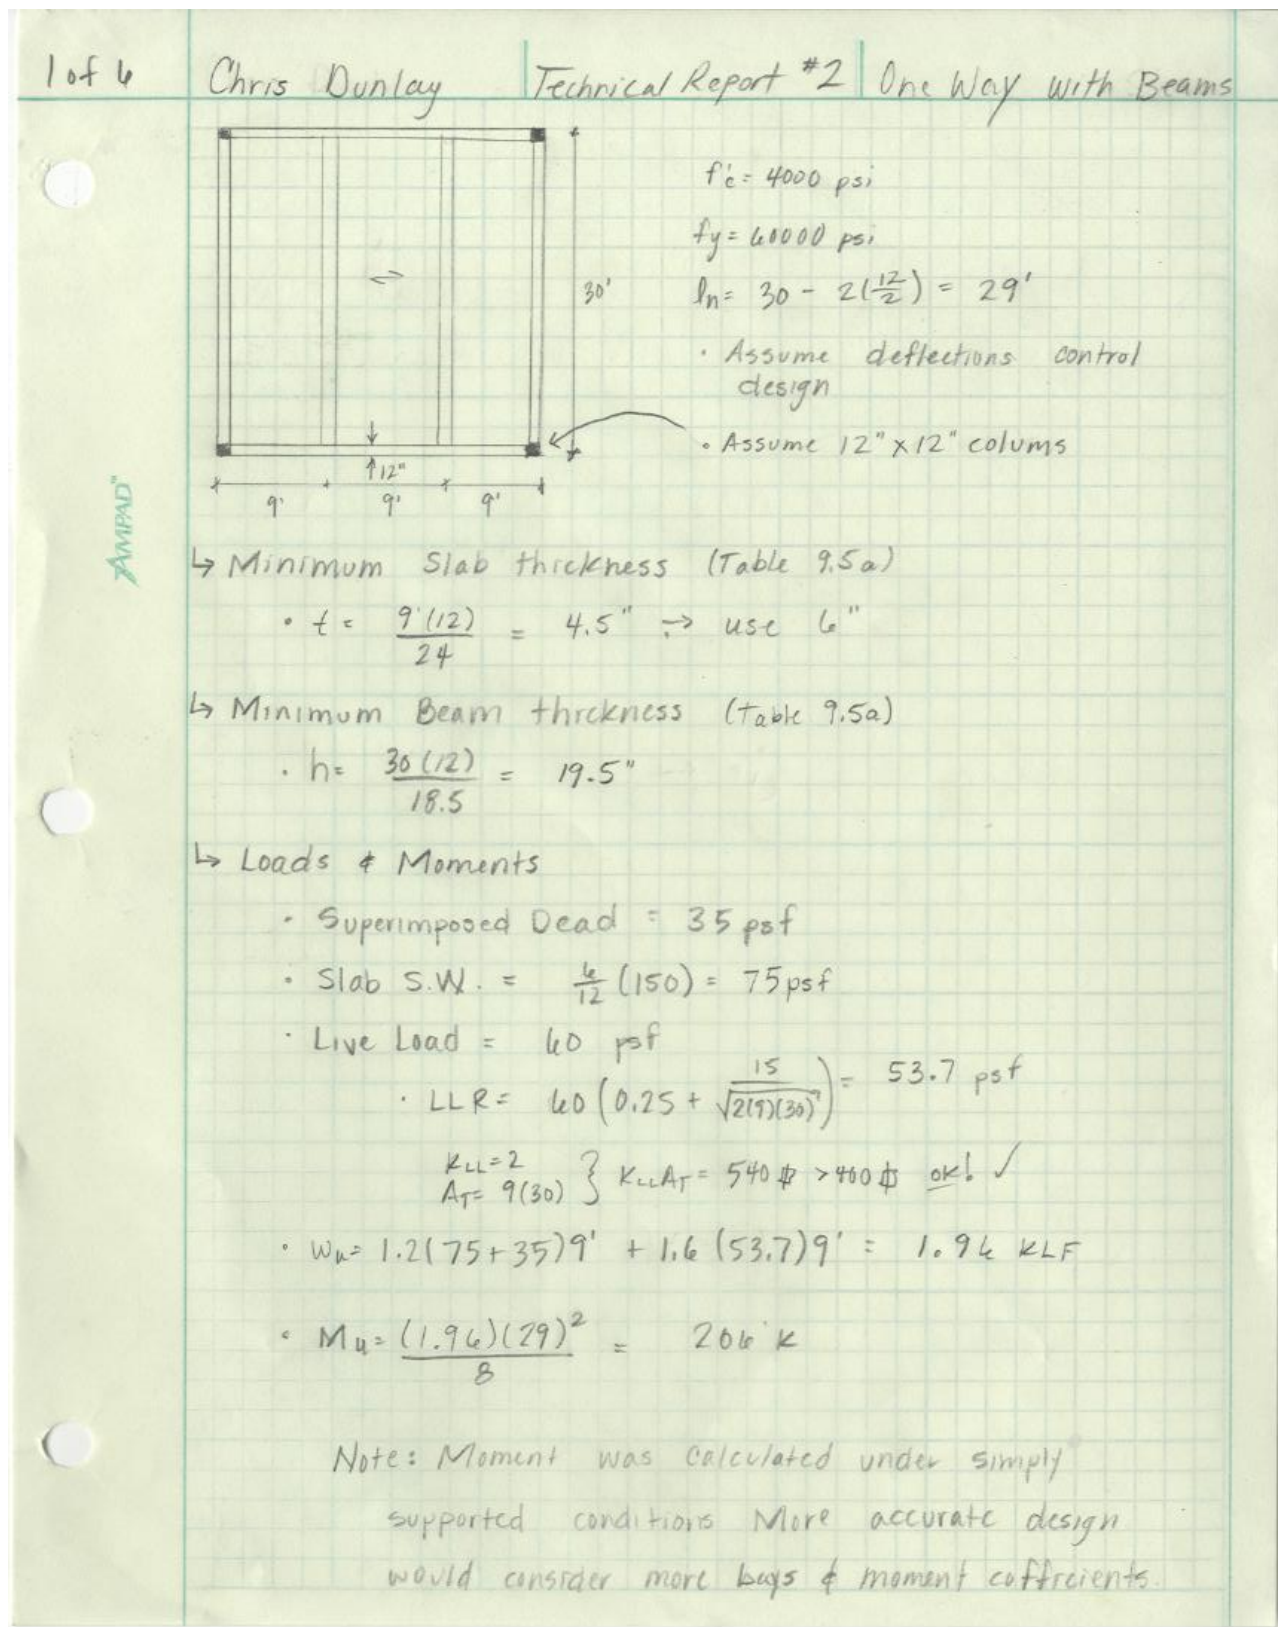 1 of 6 Chris Dunlay Technical Report #2 One Way With Beams
f'c = 4000 psi
fy = 60000 psi
30' ln = 30 - 2(12/2) = 29'
• Assume deflections control
design
• Assume 12" x 12" colums
12"
9' 9' 9'
AMPAD™
↳ Minimum Slab thickness (Table 9.5a)
• t = 9'(12)/24 = 4.5" → use 6"
↳ Minimum Beam thickness (Table 9.5a)
• h = 30(12)/18.5 = 19.5"
↳ Loads & Moments
• Superimposed Dead = 35 psf
• Slab S.W. = 6/12 (150) = 75 psf
• Live Load = 60 psf
• LLR = 60 (0.25 + 15/√2(9)(30)) = 53.7 psf
KLL = 2
AT = 9(30) } KLLAT = 540 ⏍ > 400 ⏍ OK! ✓
• Wu = 1.2(75+35)9' + 1.6 (53.7)9' = 1.96 KLF
• Mu = (1.96)(29)²/8 = 206'K
Note: Moment was calculated under simply
supported conditions More accurate design
would consider more bays & moment coffrcients.